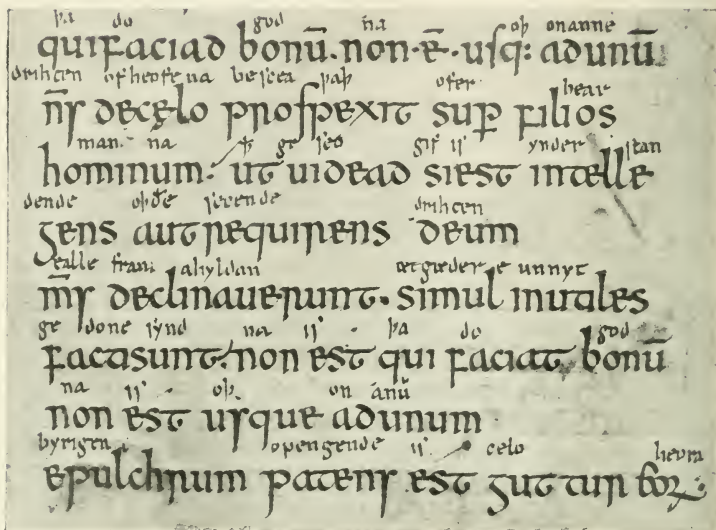 þa do god na oþ onanne
quifaciad bonū. non·ē·usq: adunū
drihcen ofheofena besceapaþ ofer bear
n̄s decęlo prospexit sup̄ filios
man. na ꝥ ge seo gif is ynder stan
hominum. ut uidead siest intelle
dende oþðe secende drihten
gens aut requirens deum
ealle fram ahyldan ætgædere unnyt
m̄s declinauerunt. simul inutiles
ge done synd na is þa do god
facti sunt. non est qui faciat bonū
na is oþ. on ánū
non est usque adunum
byrigen opengende is celo heora
epulchrum patens est guttur eorꝝ.